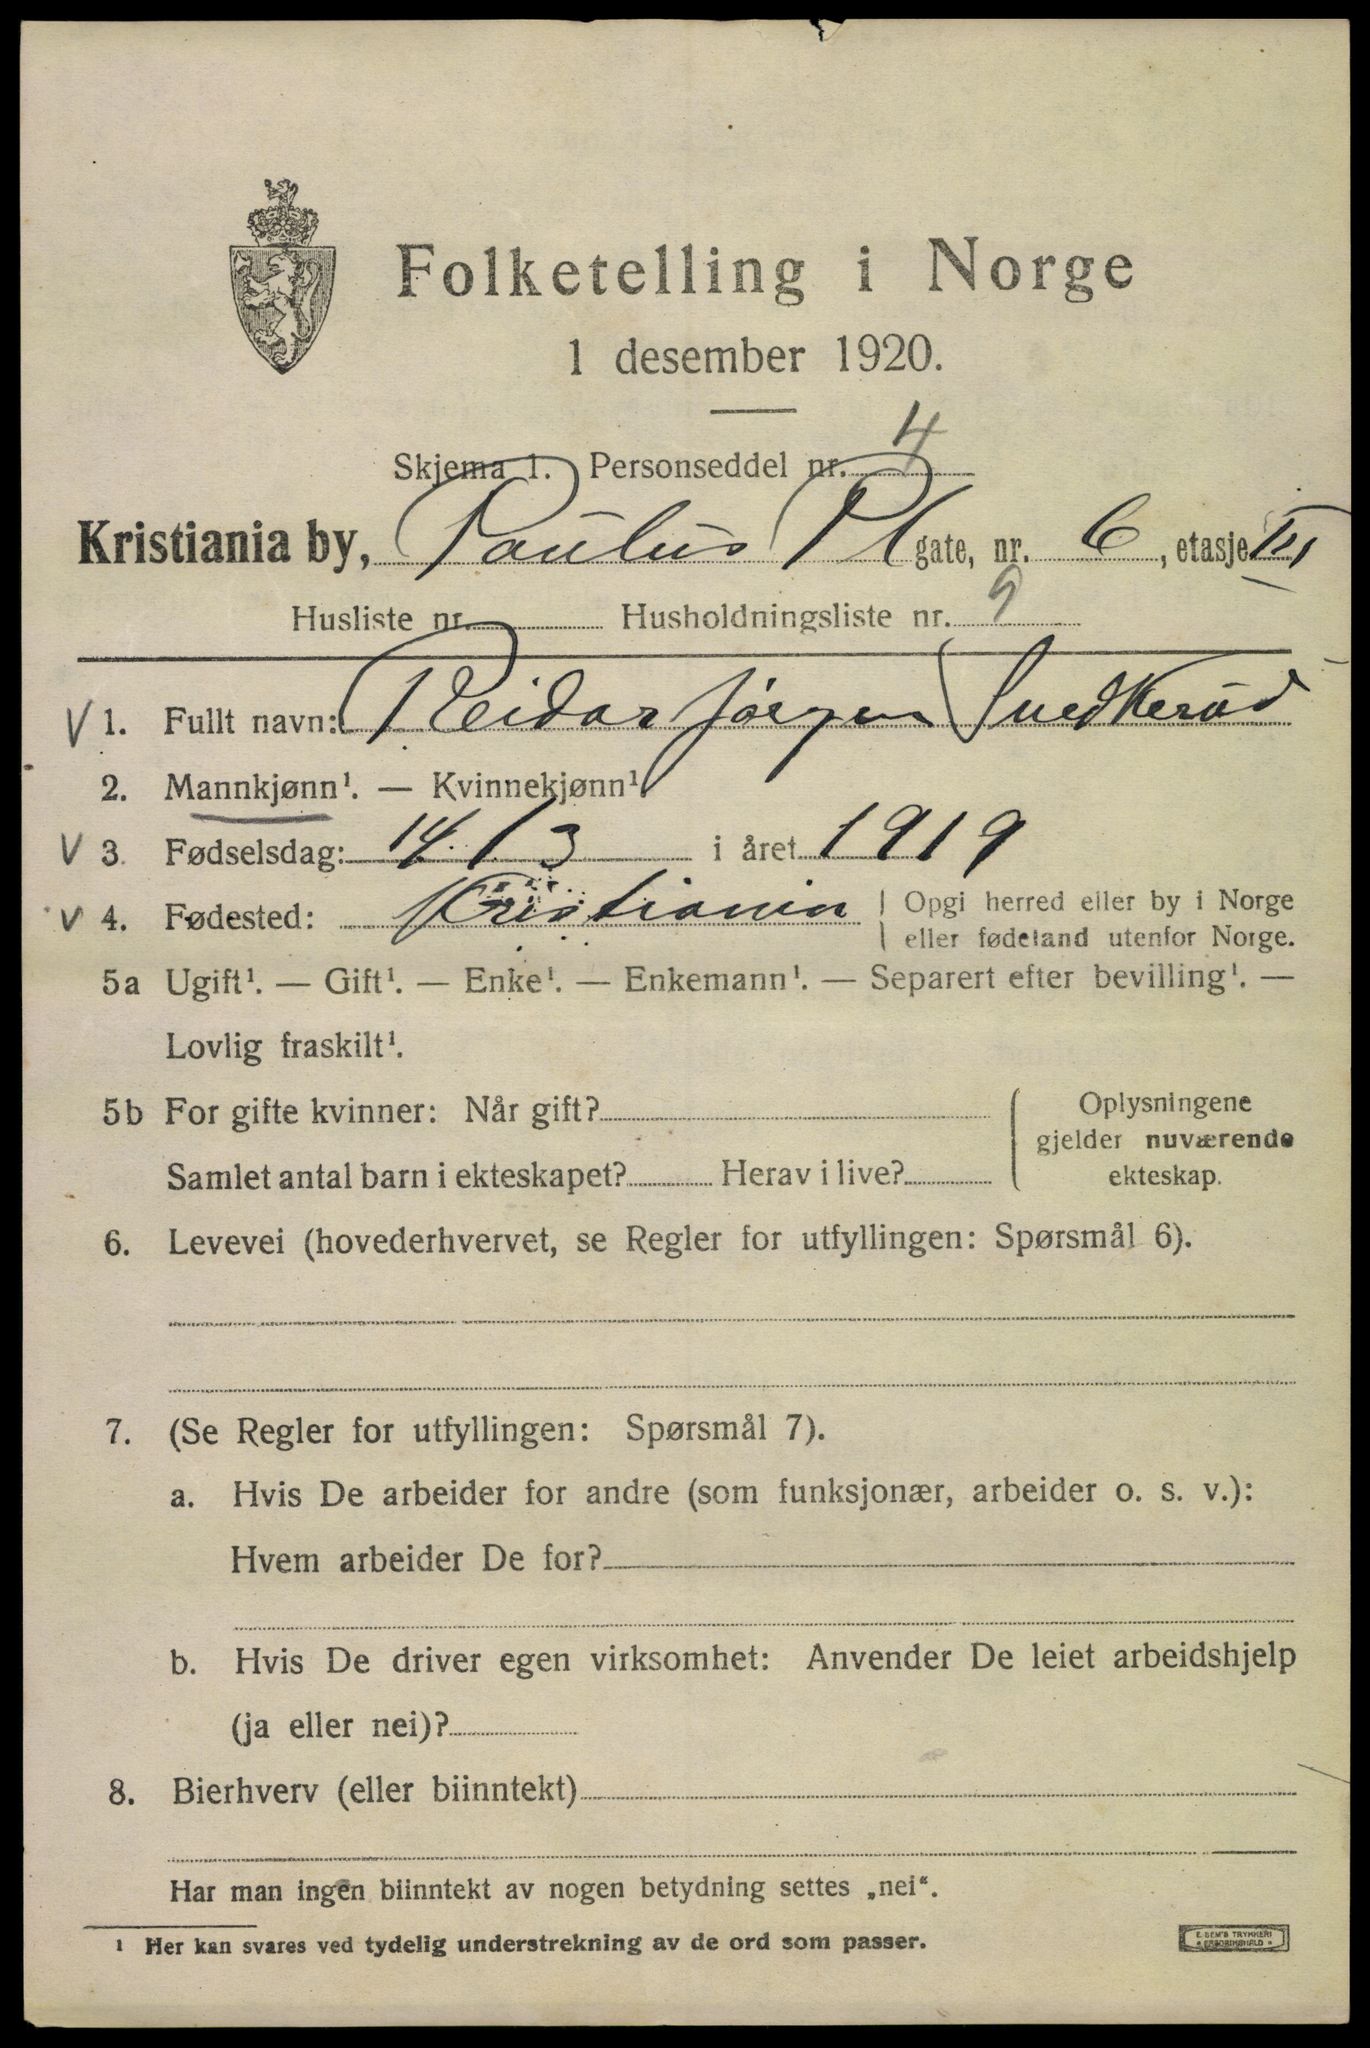 Folketelling i Norge
1 desember 1920.
Skjema 1. Personseddel nr. 4
Kristiania by, Paulus Pl gate, nr. 6, etasje III
Husliste nr. Husholdningsliste nr. 9
V 1. Fullt navn: Reidar Jörgen Snedkeröd
2. Mannkjønn¹. — Kvinnekjønn¹.
V 3. Fødselsdag: 14/3 i året 1919
V 4. Fødested: Kristiania Opgi herred eller by i Norge
eller fødeland utenfor Norge.
5a Ugift¹. — Gift¹. — Enke¹. — Enkemann¹. — Separert efter bevilling¹. —
Lovlig fraskilt¹.
5b For gifte kvinner: Når gift? Oplysningene
gjelder nuværende
Samlet antal barn i ekteskapet? Herav i live? ekteskap.
6. Levevei (hovederhvervet, se Regler for utfyllingen: Spørsmål 6).
7. (Se Regler for utfyllingen: Spørsmål 7).
a. Hvis De arbeider for andre (som funksjonær, arbeider o. s. v.):
Hvem arbeider De for?
b. Hvis De driver egen virksomhet: Anvender De leiet arbeidshjelp
(ja eller nei)?
8. Bierhverv (eller biinntekt)
Har man ingen biinntekt av nogen betydning settes „nei“.
¹ Her kan svares ved tydelig understrekning av de ord som passer.
E. SEM'S TRYKKERI
FREDRIKSHALD